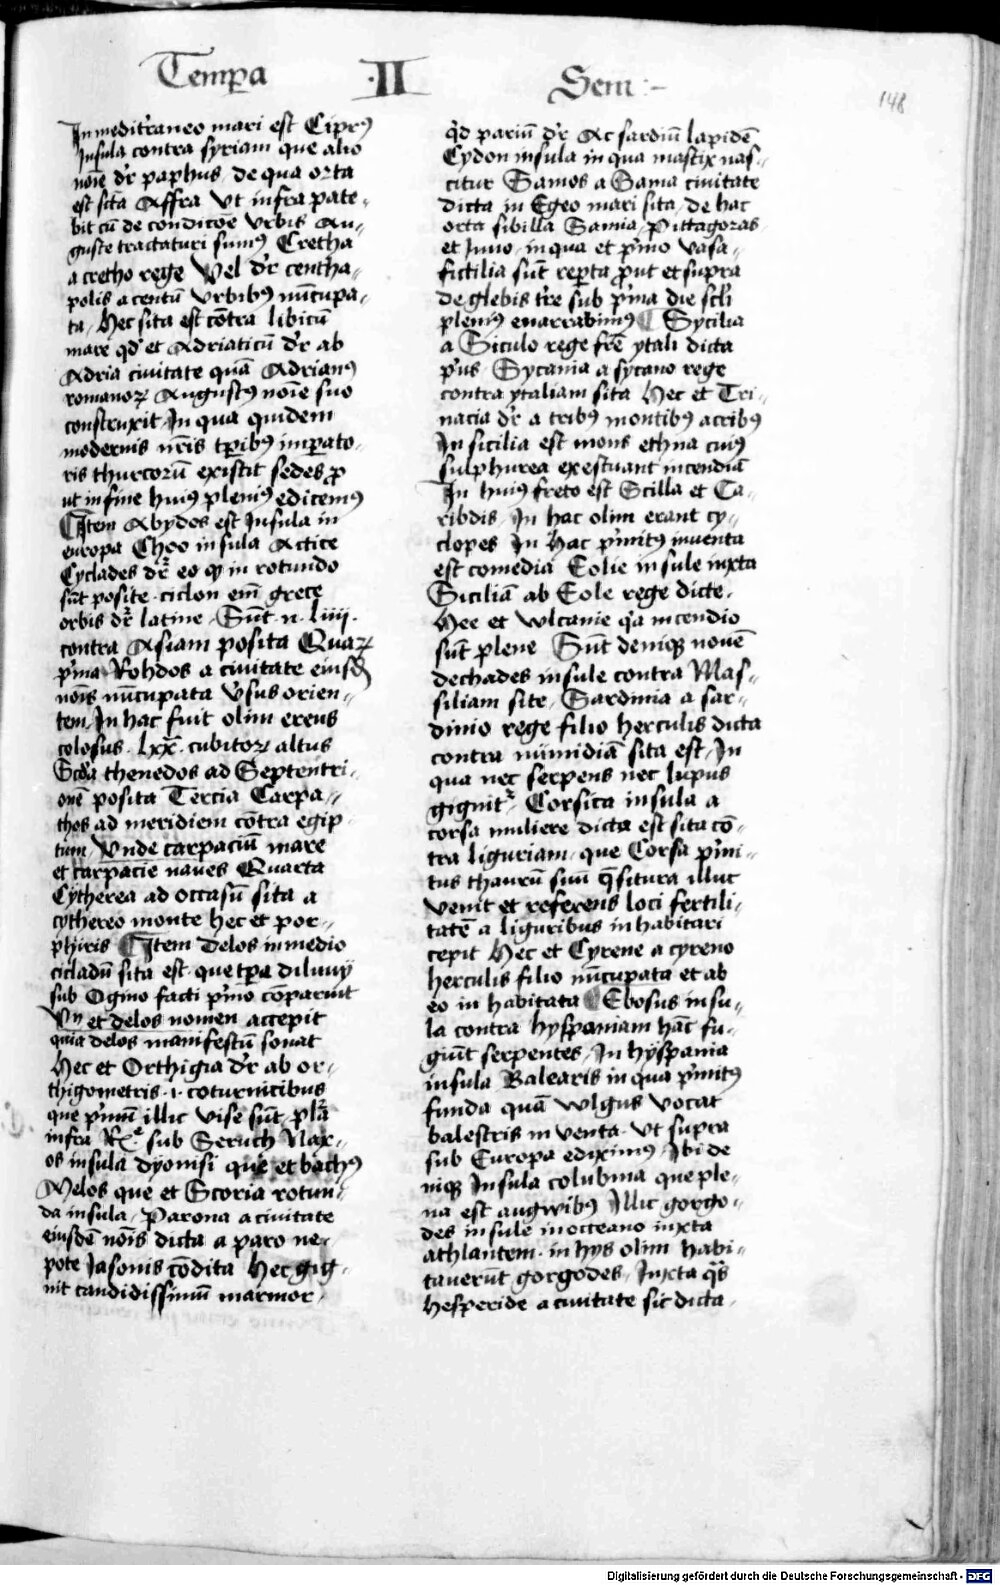 Temp̱a ·II· Sem :-
148
In medit̃raneo mari est Cipr9
Insula contra syriam que alio
noie dr̃ paphus, de qua orta
est scta Affra Vt infra pate-
bit cũ de condicõe Vrbis Au-
guste tractaturi sum9 Cretha
a cretho rege Vel dr̃ centha-
polis a centũ Vrbib9 nũcupa-
ta, Hec sita est cõtra libicũ
mare qd̃ et Adriaticũ dr̃ ab
Adria ciuitate quã Adrian9
romanoꝝ August9 noĩe suo
construxit In qua quidem
modernis nr̃is tp̱ib9 imp̱ato-
ris thurcorũ existit sedes ꝓ
ut in fine hui9 pleni9 edicem9
Item Abydos est Insula in
europa Choo insula Actice
Cyclades dr̃ eo ꝙ in rotundo
sũt posite · ciclon em̃ grece
orbis dr̃ latine, Sũt · n · liiii ·
contra Asiam posita Quaꝝ
p'ma Rohdos a ciuitate eiusd̃
nõis nũcupata V'sus orien-
tem, In hac fuit olim ereus
colosus · lxx · cubitoꝝ altus
Scd̃a thenedos ad Septentri-
onẽ posita Tercia Carpa-
thos ad meridiem cõtra egip-
tum, Vnde carpaciũ mare
et carpacie naues Quarta
Cytherea ad occasũ sita a
cythereo monte hec et por-
phiris Item Delos in medio
cicladũ sita est · que tp̱a diluuij
sub Ogino facti p'mo cõparuit
Vñ et delos nomen accepit
quia delos manifestũ sonat
Hec et Orthigia dr̃ ab or-
thigometris · i · coturnicibus
que p'mũ illic vise sũt,
infra sub Seruch Nax-
os insula dyonisi que et bach9
Melos que et Scoria rotun-
da insula, Parona a ciuitate
eiusdẽ nõis dicta a paro ne-
pote Iasonis cõdita Hec gig-
nit candidissimũ marmor ·
qd̃ pariũ dr̃ Ac sardiũ lapidẽ
Cydon insula in qua mastix nas-
citur Samos a Sama ciuitate
dicta in Egeo mari sita, de hac
orta sibilla Samia, Pittagoras
et Iuno, in qua et p'mo vasa
fictilia sũt rep̱ta ꝓut et supra
de glebis tr̃e sub p'ma die sc̃li
pleni9 enarrabim9 Sycilia
a Siculo rege fr̃e ytali dicta
p'us, Sycania a sycano rege
contra ytaliam sita Hec et Tri-
nacia dr̃ a trib9 montib9 acrib9
In sicilia est mons ethna cui9
sulphurea exestuant incendia
In hui9 freto est Scilla et Ca-
ribdis, In hac olim erant cy-
clopes In hac p'mit9 inuenta
est comedia Eolie insule iuxta
Siciliã ab Eole rege dicte ·
Hee et wlcanie qa incendio
sũt plene Sũt deniqꝫ nouẽ
dechades insule contra Mas-
siliam site, Sardinia a sar-
dinio rege filio herculis dicta
contra numidiã sita est, In
qua nec serpens nec lupus
gignit² Corsica insula a
corsa muliere dicta est sita cõ-
tra liguriam, que Corsa p'mi-
tus thaurũ suũ q̃situra illuc
venit et referens loci fertili-
tatẽ a liguribus inhabitari
cepit Hec et Cyrene a cyreno
herculis filio nũcupata et ab
eo inhabitata Ebosus insu-
la contra hyspaniam hãc fu-
giũt serpentes, In hyspania
insula Balearis in qua p'mit9
funda quã wlgus vocat
balestris inuenta · vt supra
sub Europa edixim9, Ibi de
niqꝫ Insula colubina que ple-
na est angwib9 Illic gorgo-
des insule in occeano iuxta
athlantem · in hys olim habi-
tauerũt gorgodes, Iuxta q̃s
Hesperide a ciuitate sic dicta ·
Digitalisierung gefördert durch die Deutsche Forschungsgemeinschaft - DFG